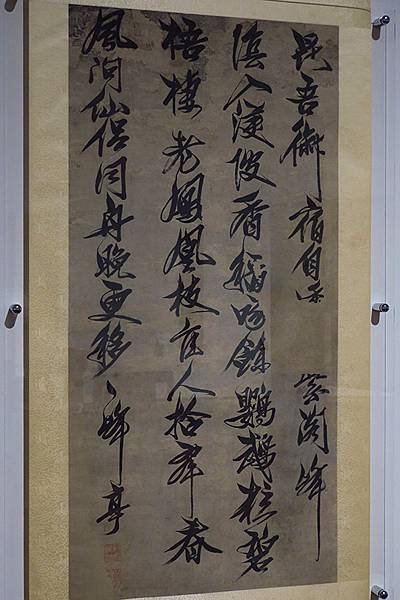 昆吾御宿自紫閣峰
陰入渼陂香稻啄餘鸚鵡粒碧
梧棲老鳳凰枝佳人拾翠春
問仙侶同舟晚更移